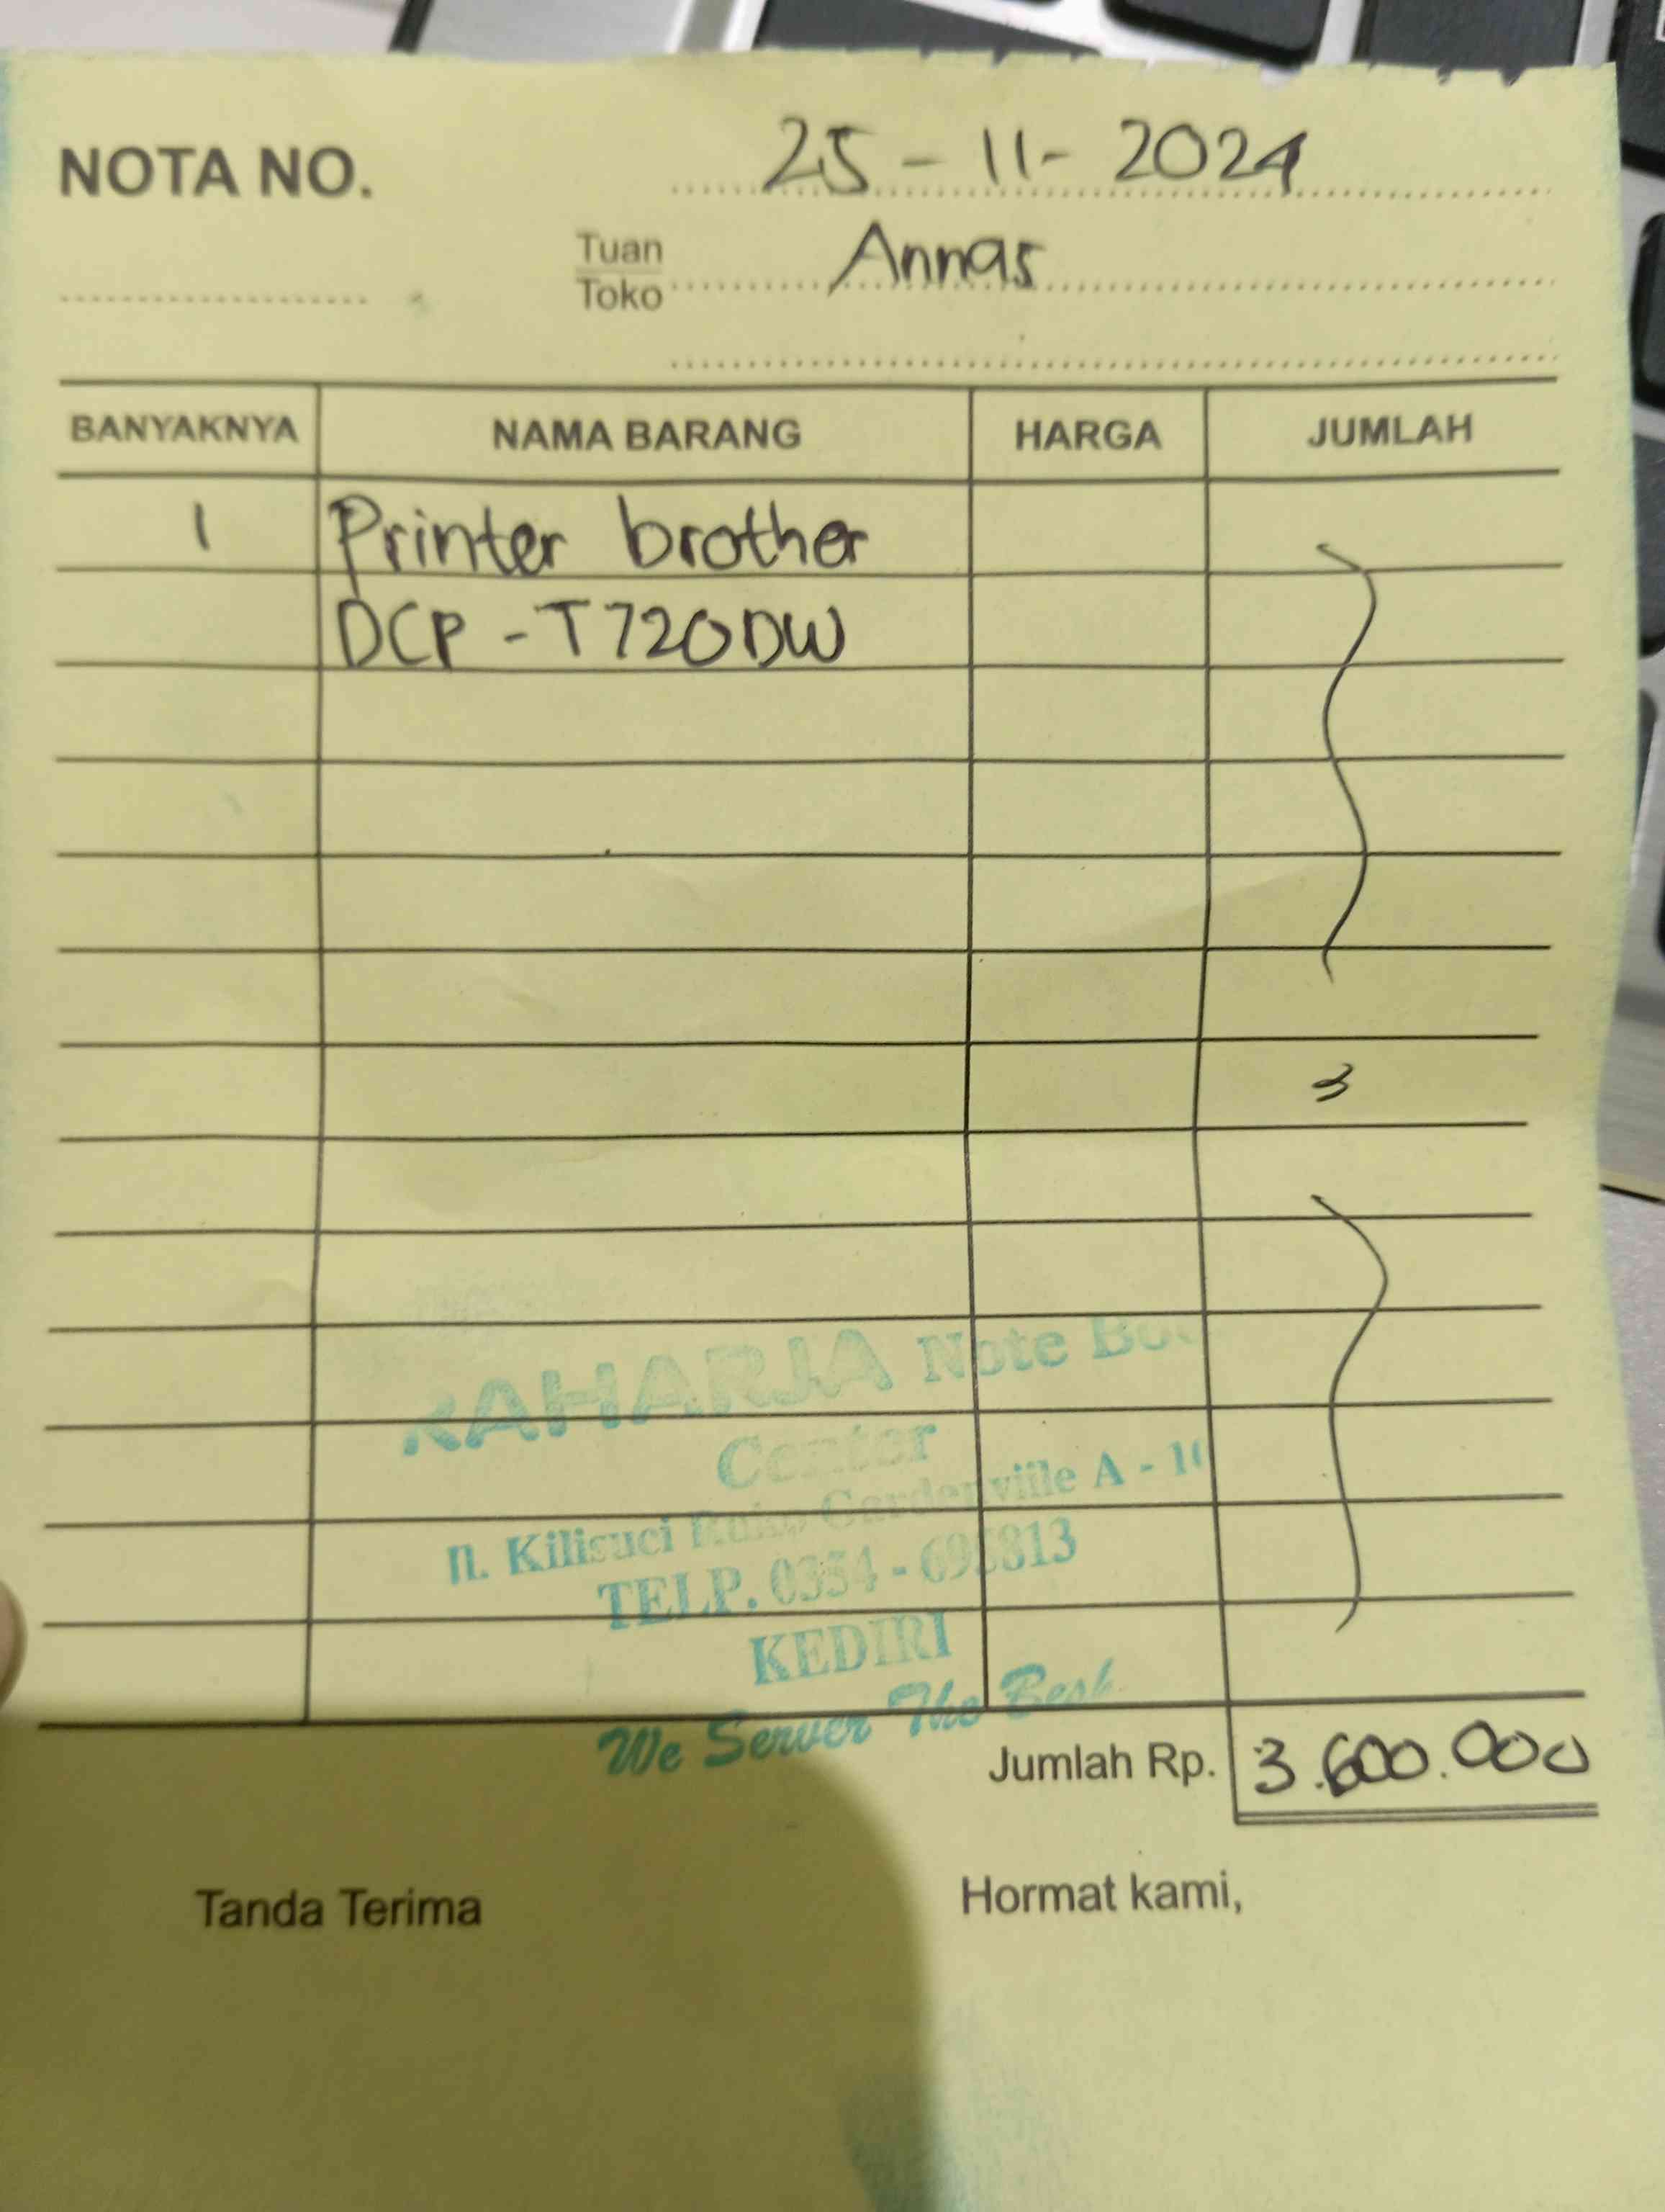 NOTA NO.
25 - 11 - 2024
Tuan
Toko
Annas
BANYAKNYA NAMA BARANG HARGA JUMLAH
1 Printer brother
DCP - T720DW
RAHARJA Note
Center
Jl. Kilisuci Ruko Gardenville A -
TELP. 0354 -
KEDIRI
We Server The Best
Jumlah Rp. 3.600.000
Tanda Terima Hormat kami,